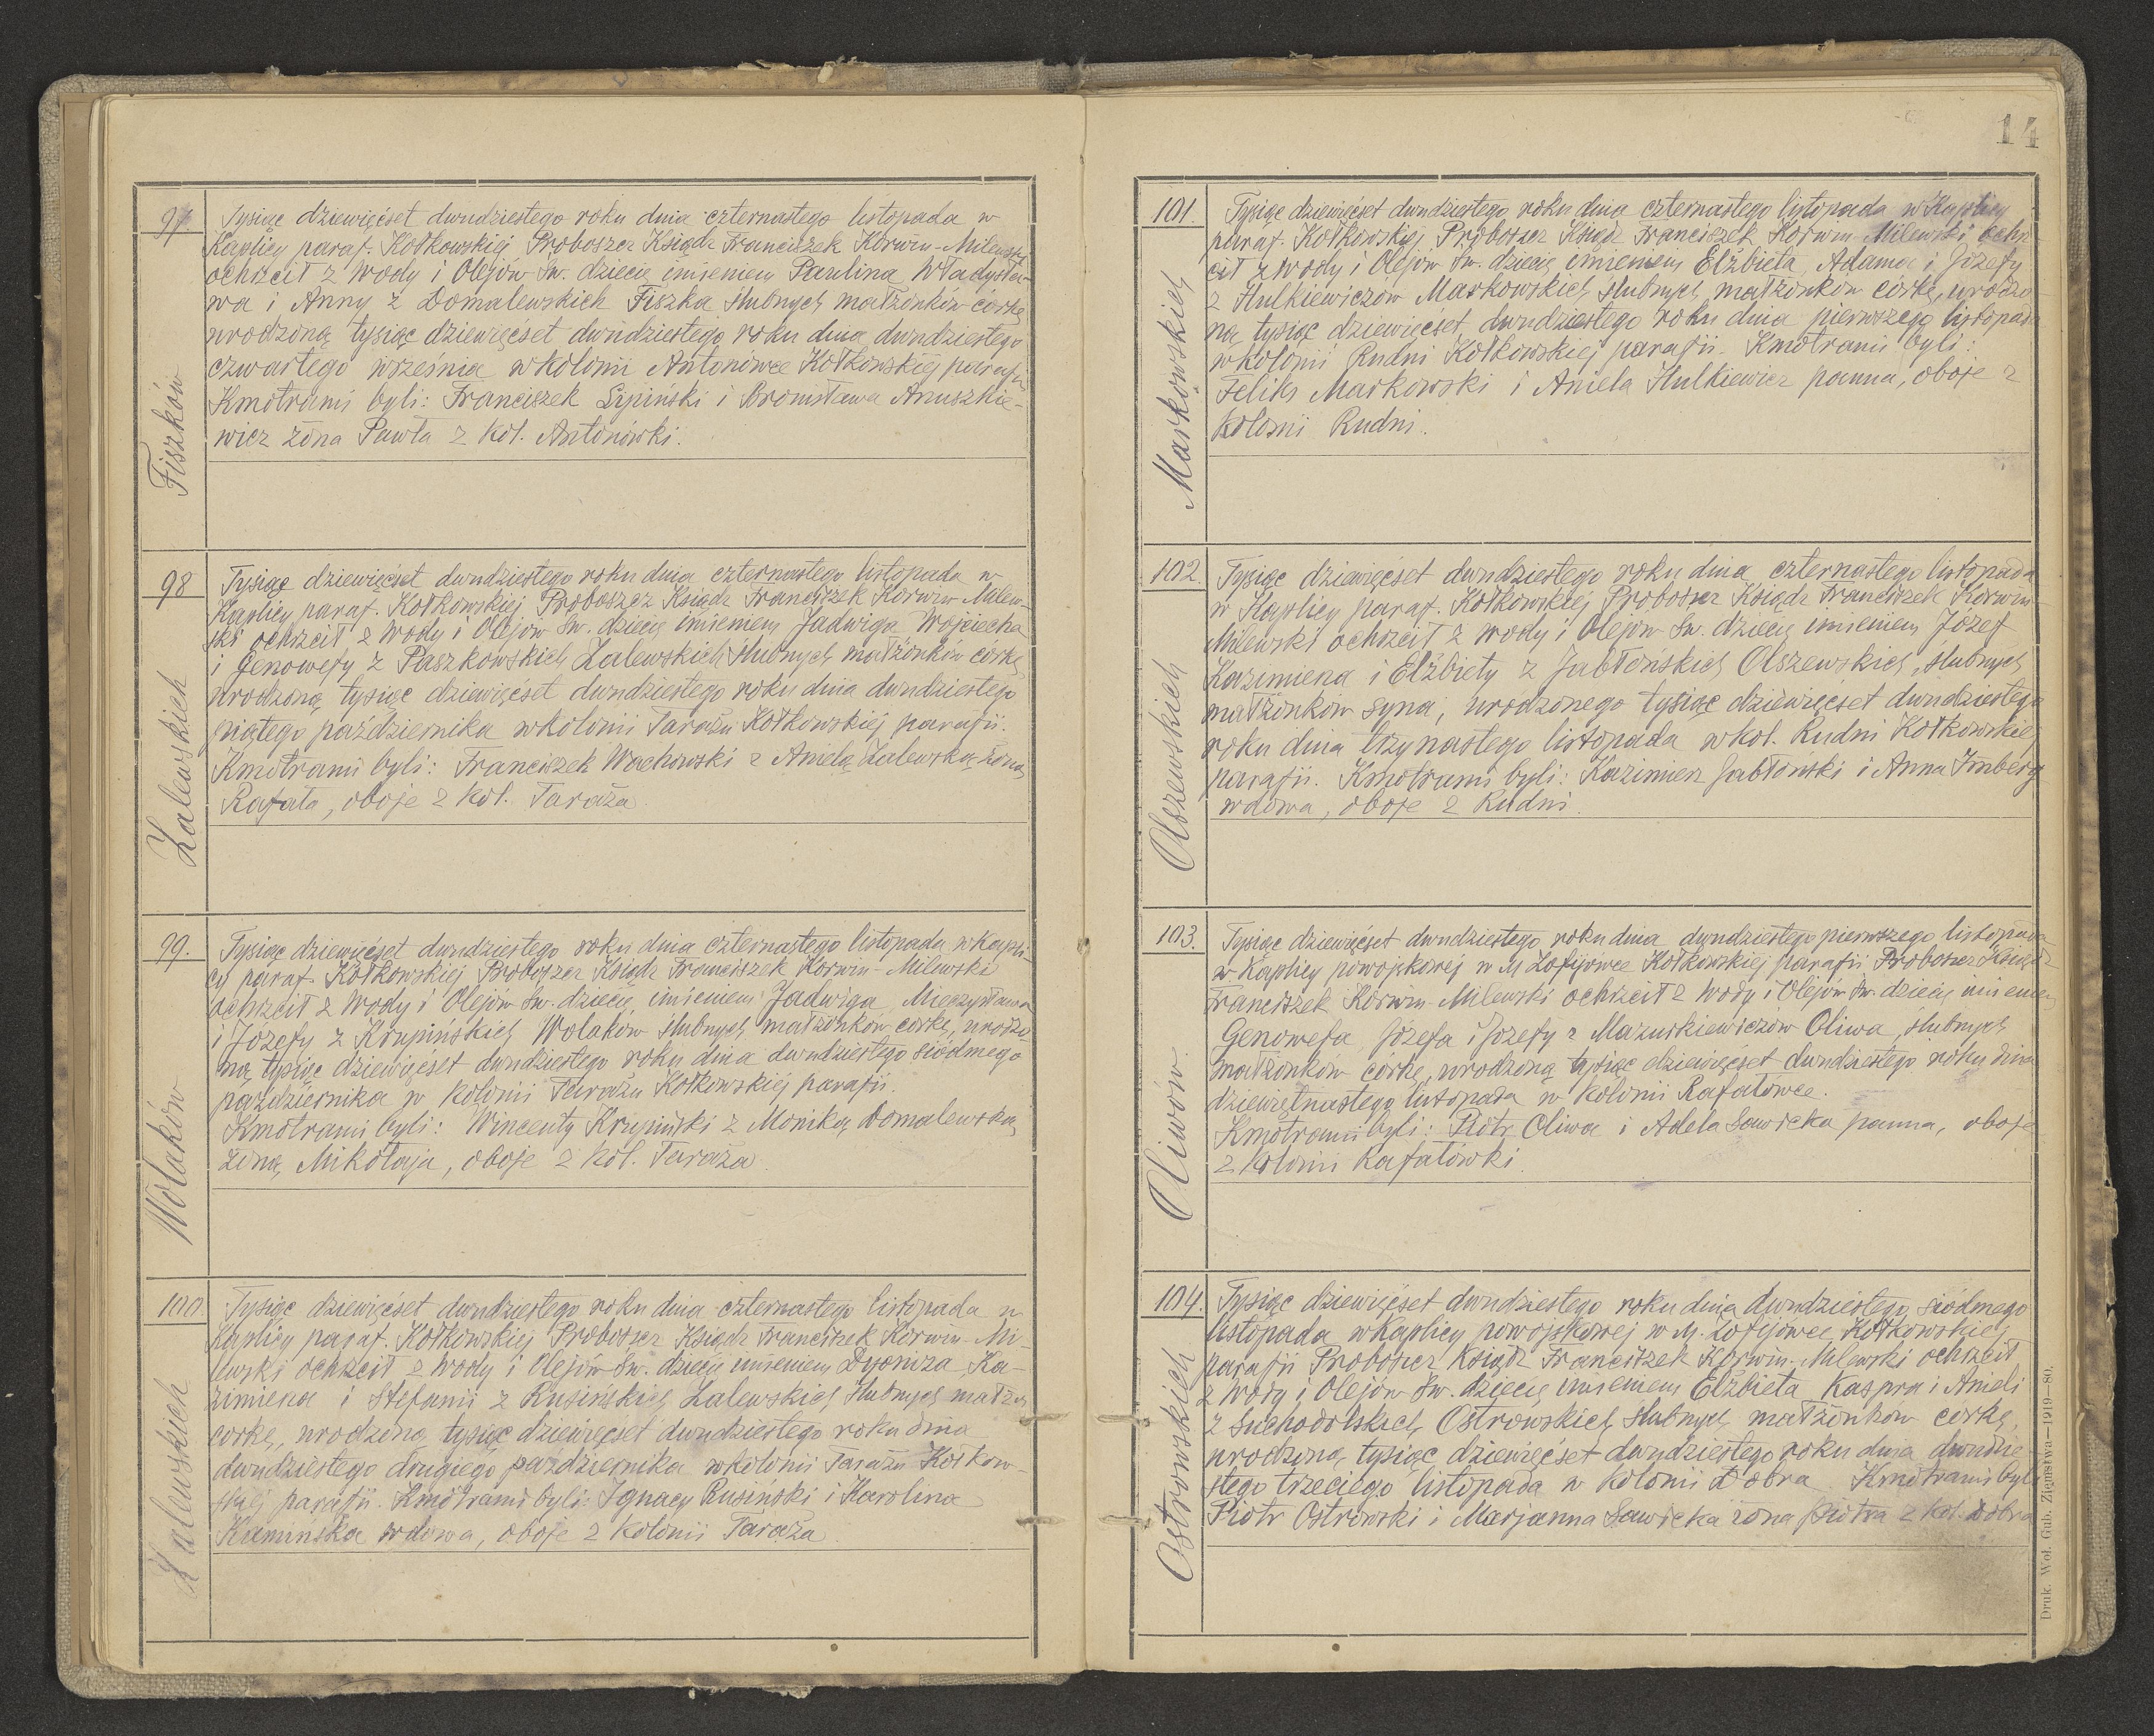 97.
Fiszków
Tysiąc dziewięćset dwudziestego roku dnia czternastego listopada w
Kaplicy paraf. Kołkowskiej Proboszcz Ksiądz Franciszek Korwin-Milewski
ochrzcił z Wody i Olejów Św. dziecię imieniem Paulina, Władysła-
wa i Anny z Domalewskich Fiszka ślubnych małżonków córkę
urodzoną tysiąc dziewięćset dwudziestego roku dnia dwudziestego
czwartego września w kolonii Antonówce Kołkowskiej parafii
Kmotrami byli: Franciszek Lipiński i Bronisława Anuszkie-
wicz żona Pawła z kol. Antonówki.
98
Zalewskich
Tysiąc dziewięćset dwudziestego roku dnia czternastego listopada w
Kaplicy paraf. Kołkowskiej Proboszcz Ksiądz Franciszek Korwin Milew-
ski ochrzcił z Wody i Olejów Św. dziecię imieniem Jadwiga Wojciecha
i Genowefy z Paszkowskich Zalewskich ślubnych małżonków córkę
urodzoną tysiąc dziewięćset dwudziestego roku dnia dwudziestego
piątego października w kolonii Tarażu Kołkowskiej parafii.
Kmotrami byli: Franciszek Wachowski z Anielą Zalewską żoną
Rafała, oboje z kol. Taraża.
99.
Wolaków
Tysiąc dziewięćset dwudziestego roku dnia czternastego listopada w Kapli-
cy paraf. Kołkowskiej Proboszcz Ksiądz Franciszek Korwin-Milewski
ochrzcił z Wody i Olejów Św. dziecię imieniem Jadwiga, Mieczysława
i Józefy z Krupińskich Wolaków ślubnych małżonków córkę, urodzo-
ną tysiąc dziewięćset dwudziestego roku dnia dwudziestego siódmego
października w kolonii Tarażu Kołkowskiej parafii.
Kmotrami byli: Wincenty Krupiński z Moniką Domalewską
żoną Mikołaja, oboje z kol. Taraża.
100
Zalewskich
Tysiąc dziewięćset dwudziestego roku dnia czternastego listopada w
Kaplicy paraf. Kołkowskiej Proboszcz Ksiądz Franciszek Korwin-Mi-
lewski ochrzcił z Wody i Olejów Św. dziecię imieniem Dyoniza, Ka-
zimierza i Stefanii z Rusińskich Zalewskich ślubnych małżon
córkę, urodzoną tysiąc dziewięćset dwudziestego roku dnia
dwudziestego drugiego października w kolonii Tarażu Kołkow-
skiej parafii. Kmotrami byli: Ignacy Rusiński i Karolina
Kamińska wdowa, oboje z kolonii Taraża
14
101.
Markowskich
Tysiąc dziewięćset dwudziestego roku dnia czternastego listopada w Kaplicy
paraf. Kołkowskiej Proboszcz Ksiądz Franciszek Korwin-Milewski ochrz
cił z Wody i Olejów Św. dziecię imieniem Elżbieta, Adama i Józefy
z Hulkiewiczów Markowskich ślubnych małżonków córkę, urodzo
ną tysiąc dziewięćset dwudziestego roku dnia pierwszego listopada
w kolonii Rudni Kołkowskiej parafii. Kmotrami byli:
Feliks Markowski i Aniela Hulkiewicz panna, oboje z
kolonii Rudni.
102.
Olszewskich
Tysiąc dziewięćset dwudziestego roku dnia czternastego listopada
w Kaplicy paraf. Kołkowskiej Proboszcz Ksiądz Franciszek Korwin
Milewski ochrzcił z wody i Olejów Św. dziecię imieniem Józef
Kazimierza i Elżbiety z Jabłońskich Olszewskich, ślubnych
małżonków syna, urodzonego tysiąc dziewięćset dwudziestego
roku dnia trzynastego listopada w kol. Rudni Kołkowskiej
parafii. Kmotrami byli: Kazimierz Jabłoński i Anna Imberg
wdowa, oboje z Rudni.
103.
Oliwów
Tysiąc dziewięćset dwudziestego roku dnia dwudziestego pierwszego listopada
w Kaplicy powojskowej w M. Zofijówce Kołkowskiej parafii Proboszcz Ksiądz
Franciszek Korwin-Milewski ochrzcił z Wody i Olejów Św. dziecię imieniem
Genowefa, Józefa i Józefy z Mazurkiewiczów Oliwa, ślubnych
małżonków córkę, urodzoną tysiąc dziewięćset dwudziestego roku dnia
dziewiętnastego listopada w kolonii Rafałówce.
Kmotrami byli: Piotr Oliwa i Adela Sawicka panna, oboje
z kolonii Rafałówki.
104.
Ostrowskich
Tysiąc dziewięćset dwudziestego roku dnia dwudziestego siódmego
listopada w Kaplicy powojskowej w M. Zofijówce Kołkowskiej
parafii Proboszcz Ksiądz Franciszek Korwin-Milewski ochrzcił
z Wody i Olejów Św. dziecię imieniem Elżbieta Kaspra i Anieli
z Suchodolskich Ostrowskich ślubnych małżonków córkę,
urodzoną tysiąc dziewięćset dwudziestego roku dnia dwudzie-
stego trzeciego listopada w kolonii Dobra. Kmotrami byli
Piotr Ostrowski i Marjanna Sawicka żona Piotra z kol. Dobra
Druk. Woł. Gub. Ziemstwa—1919—80.